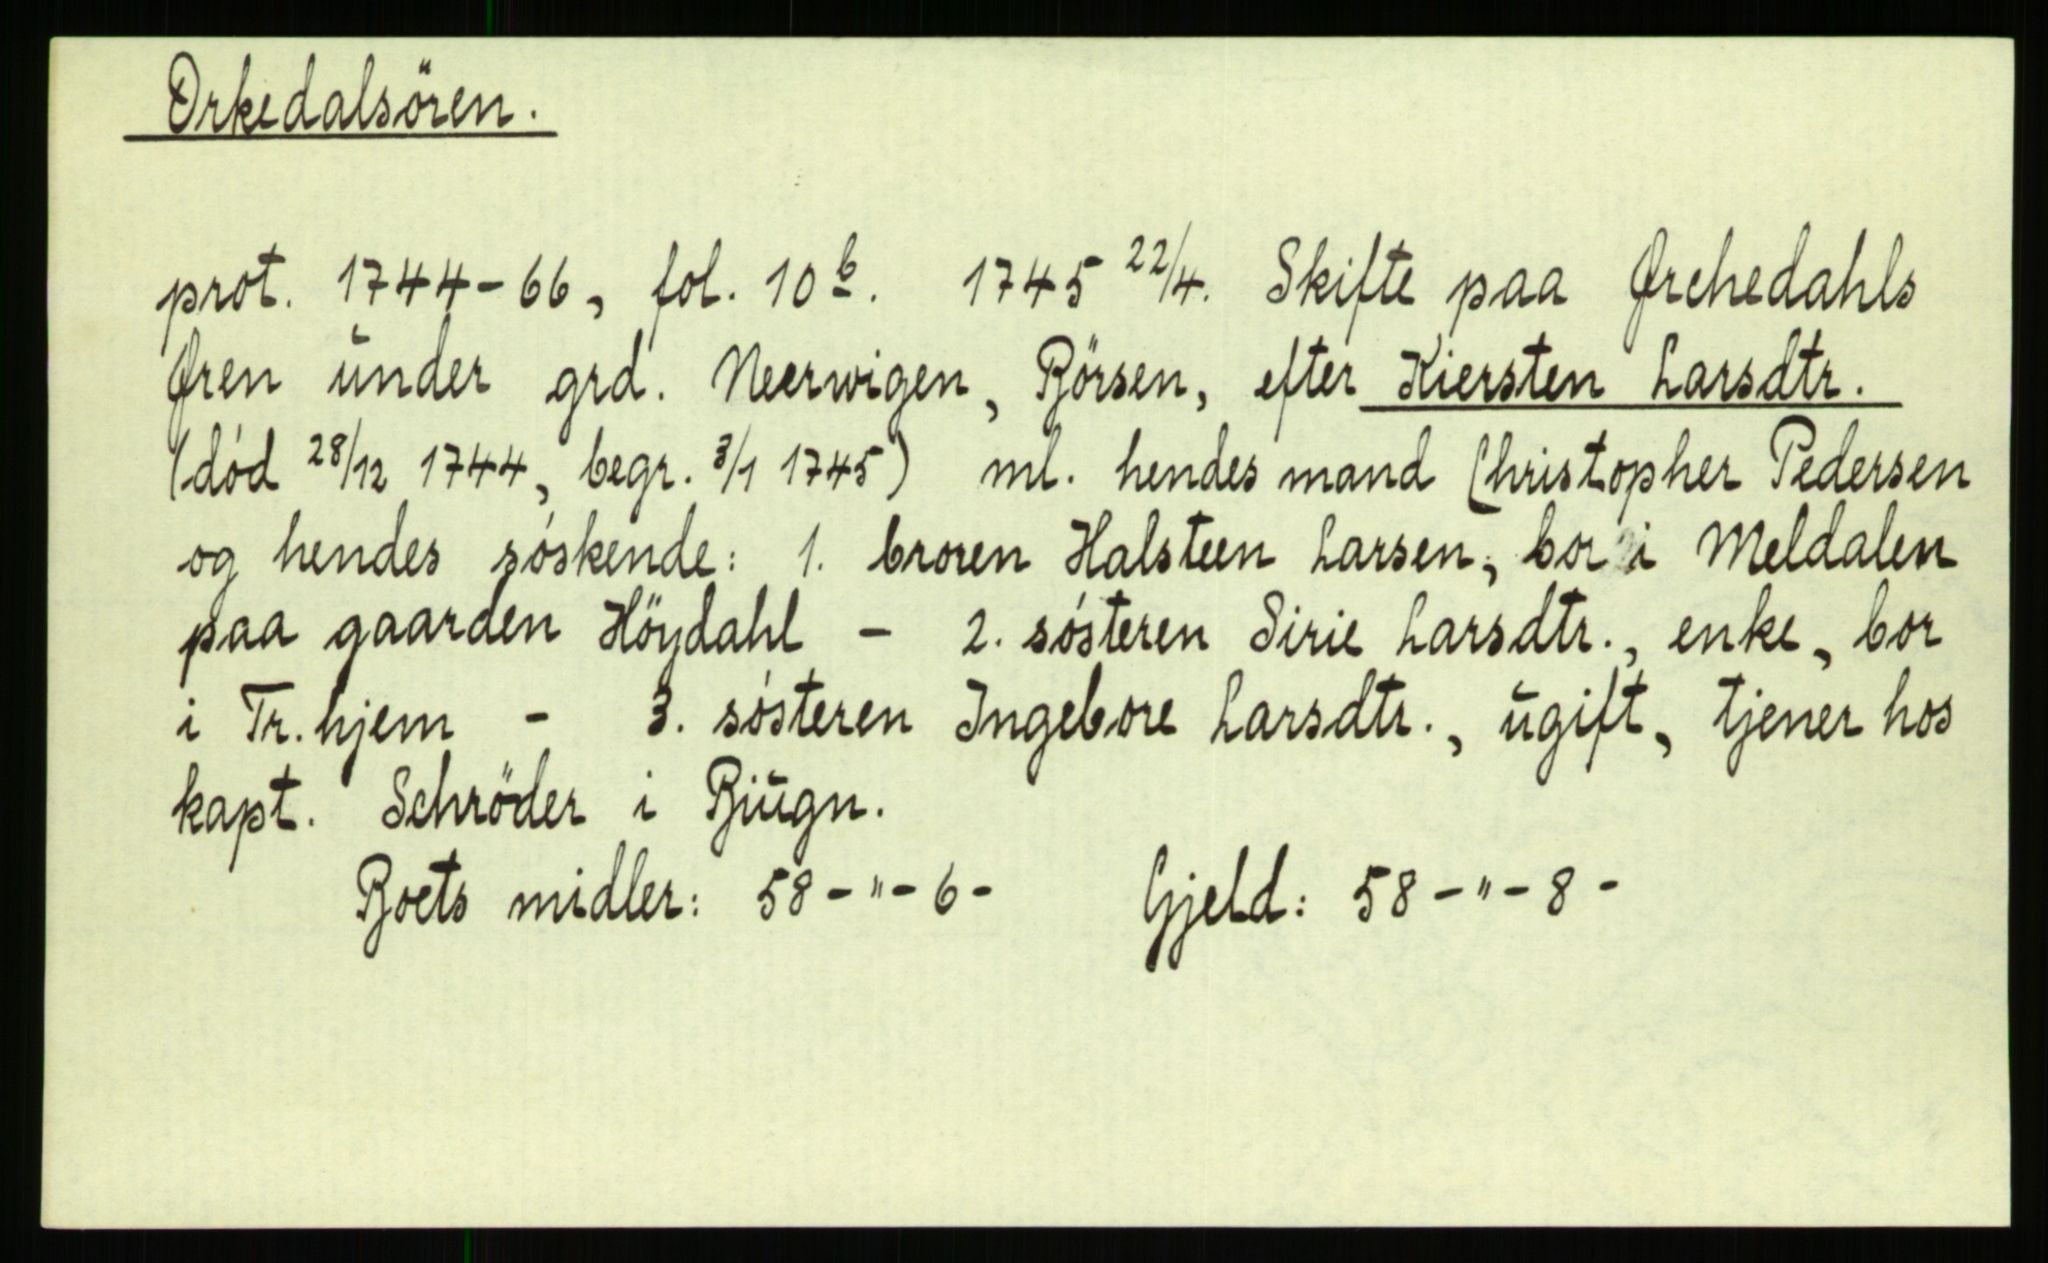 Orkedalsören.
prot. 1744-66, fol. 10 b. 1745 22/4. Skifte paa Ørchedahls
Øren under grd. Neerwigen, Börsen, efter Kiersten Larsdtr.
(död 28/12 1744, begr. 3/1 1745) ml. hendes mand Christopher Pedersen
og hendes söskende: 1. broren Halsteen Larsen, bor i Meldalen
paa gaarden Höydahl - 2. sösteren Sirie Larsdtr., enke, bor
i Tr.hjem - 3. sösteren Ingebore Larsdtr., ugift, tjener hos
kapt. Schröder i Bjugn.
Boets midler: 58 - " - 6 - Gjeld: 58 - " - 8 -